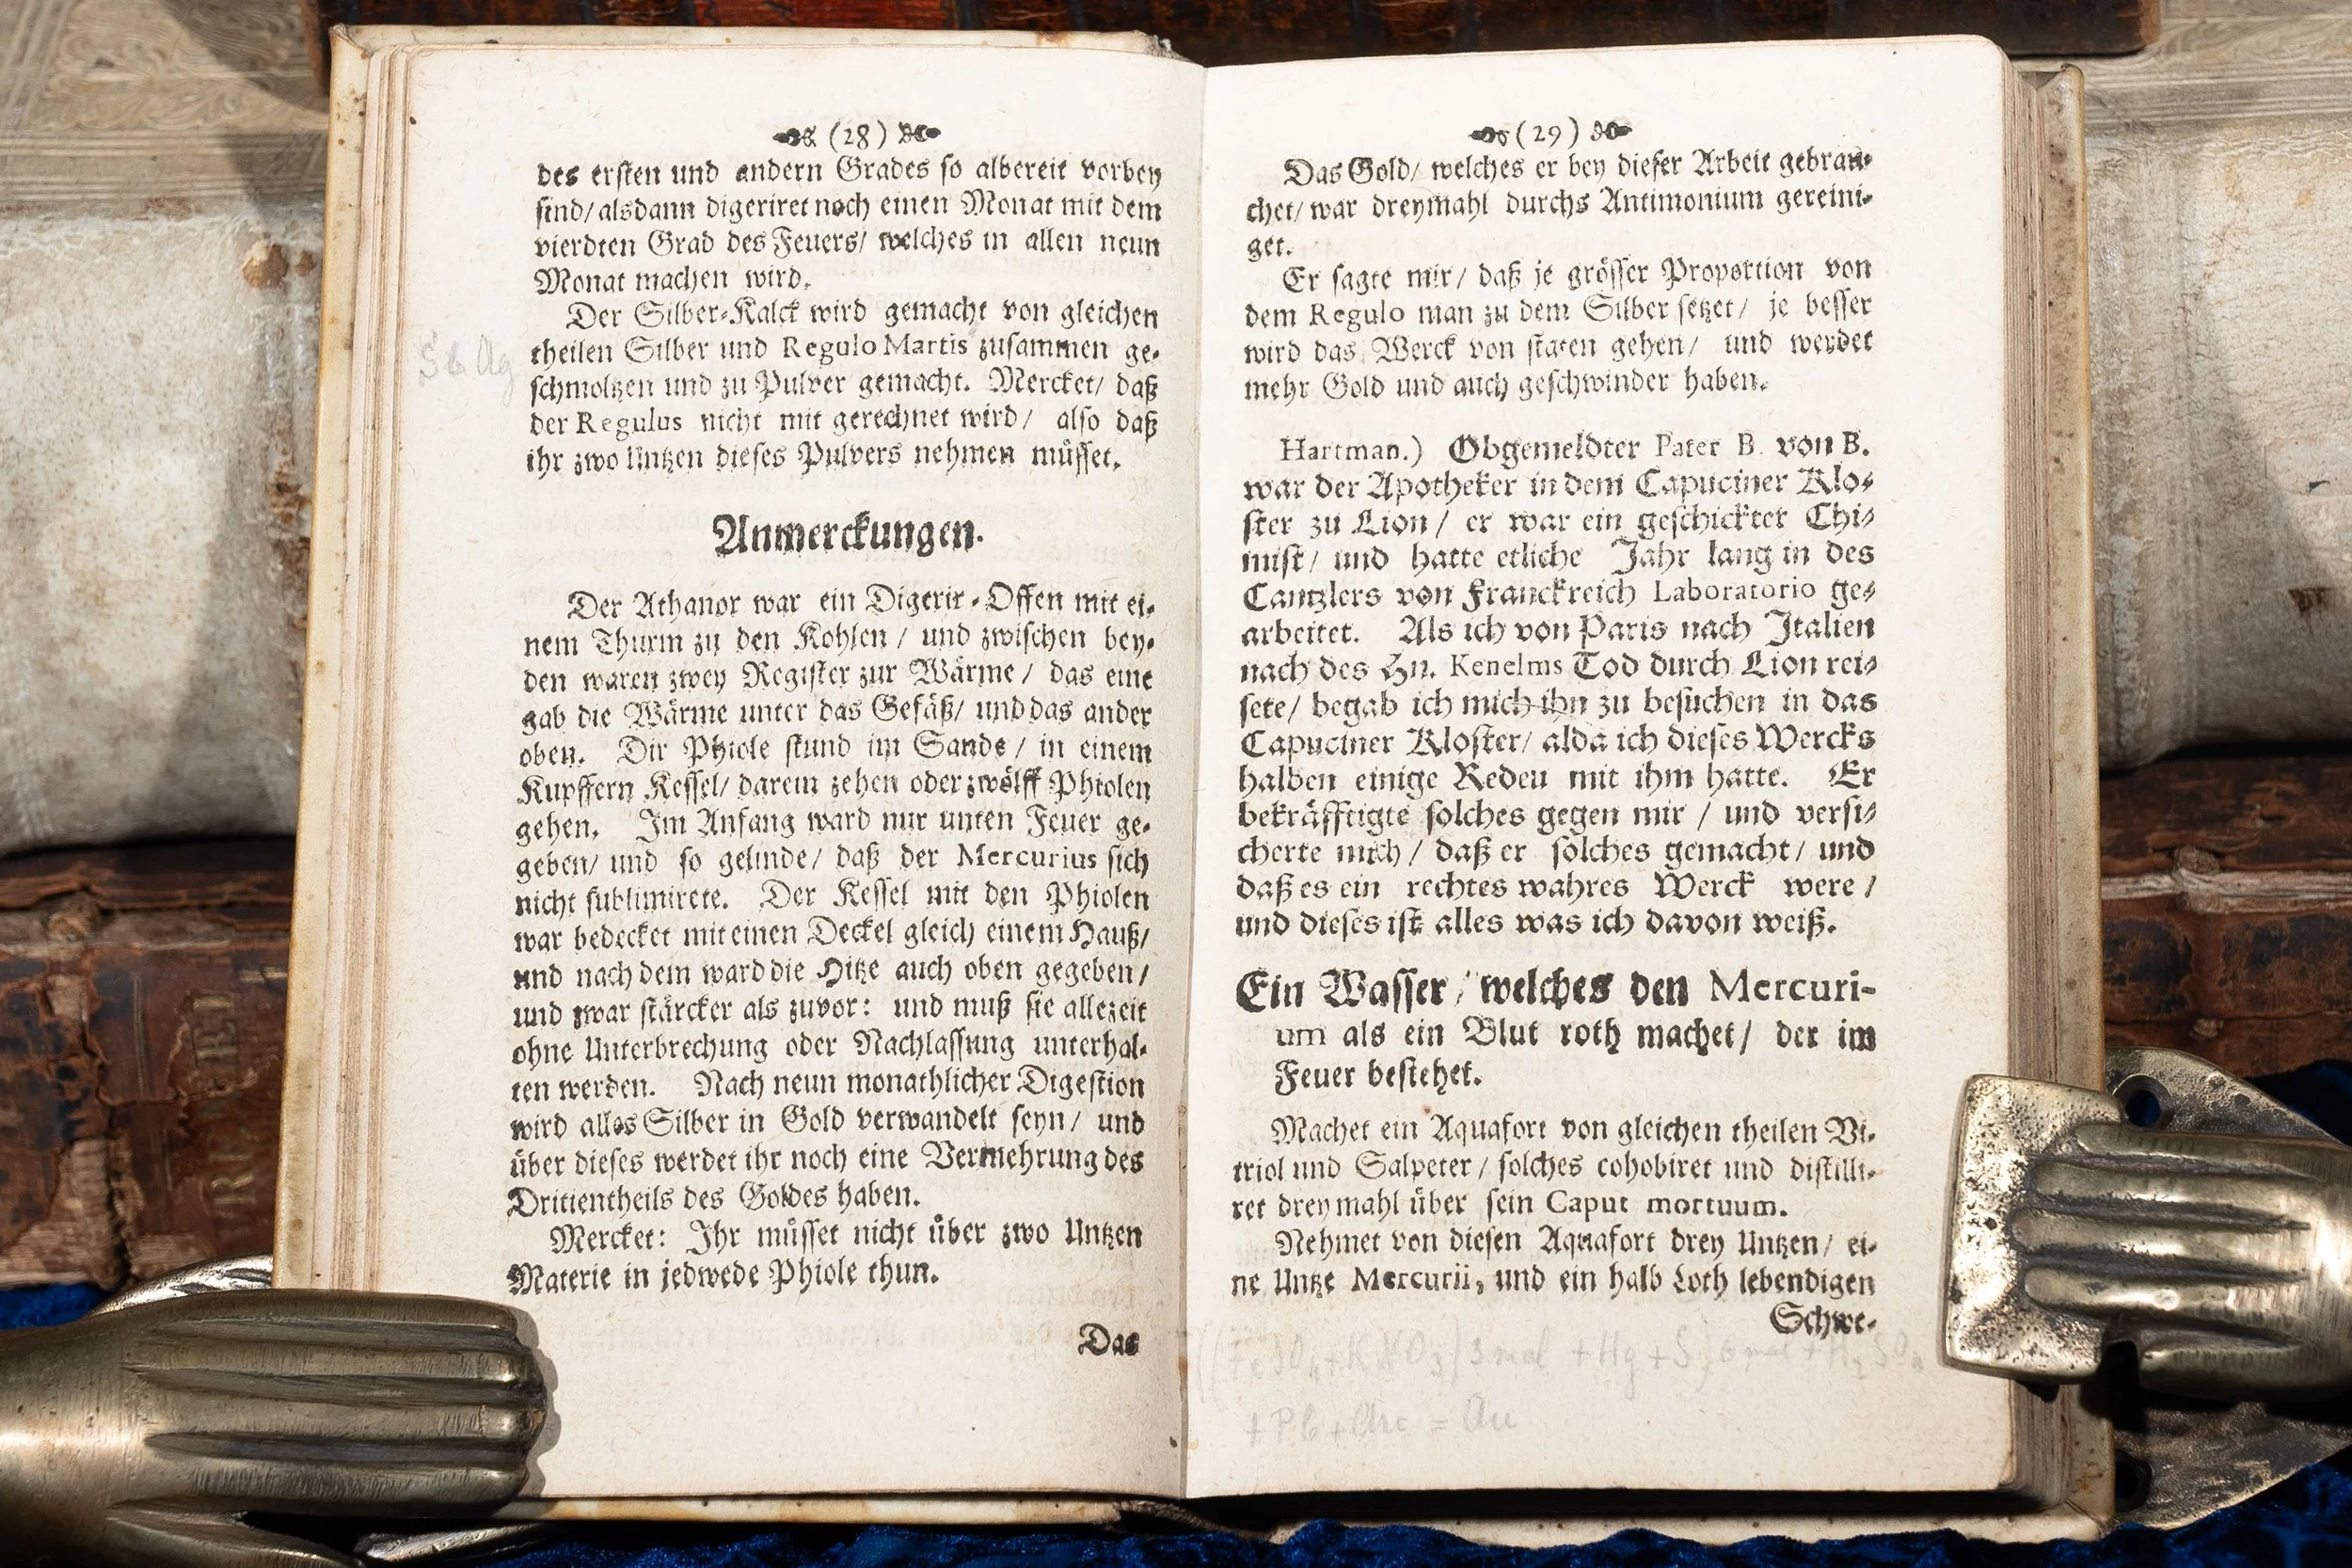 (28)
des ersten und andern Grades so albereit vorbey
sind/ alsdann digeriret noch einen Monat mit dem
vierdten Grad des Feuers/ welches in allen neun
Monat machen wird.
Der Silber-Kalck wird gemacht von gleichen
theilen Silber und Regulo Martis zusammen ge-
schmoltzen und zu Pulver gemacht. Mercket/ daß
der Regulus nicht mit gerechnet wird/ also daß
ihr zwo Untzen dieses Pulvers nehmen müsset.
Sb Ag
Anmerckungen.
Der Athanor war ein Digerir-Offen mit ei-
nem Thurm zu den Kohlen / und zwischen bey-
den waren zwey Register zur Wärme / das eine
gab die Wärme unter das Gefäß/ und das ander
oben. Dir Phiole stund im Sande / in einem
Kupffern Kessel/ darein zehen oder zwölff Phiolen
gehen. Im Anfang ward nur unten Feuer ge-
geben/ und so gelinde/ daß der Mercurius sich
nicht sublimirete. Der Kessel mit den Phiolen
war bedecket mit einen Deckel gleich einem Hauß/
und nach dem ward die Hitze auch oben gegeben /
und zwar stärcker als zuvor: und muß sie allezeit
ohne Unterbrechung oder Nachlassung unterhal-
ten werden. Nach neun monathlicher Digestion
wird alles Silber in Gold verwandelt seyn / und
über dieses werdet ihr noch eine Vermehrung des
Drittentheils des Goldes haben.
Mercket: Ihr müsset nicht über zwo Untzen
Materie in jedwede Phiole thun.
Das
(29)
Das Gold/ welches er bey dieser Arbeit gebrau-
chet/ war dreymahl durchs Antimonium gereini-
get.
Er sagte mir/ daß je grösser Proportion von
dem Regulo man zu dem Silber setzet/ je besser
wird das Werck von staten gehen/ und werdet
mehr Gold und auch geschwinder haben.
Hartman.) Obgemeldter Pater B. von B.
war der Apotheker in dem Capuciner Klo-
ster zu Lion / er war ein geschickter Chi-
mist/ und hatte etliche Jahr lang in des
Cantzlers von Franckreich Laboratorio ge-
arbeitet. Als ich von Paris nach Italien
nach des Hn. Kenelms Tod durch Lion rei-
sete/ begab ich mich ihn zu besuchen in das
Capuciner Kloster/ alda ich dieses Wercks
halben einige Redeu mit ihm hatte. Er
bekräfftigte solches gegen mir / und versi-
cherte mich / daß er solches gemacht / und
daß es ein rechtes wahres Werck were /
und dieses ist alles was ich davon weiß.
Ein Wasser / welches den Mercuri-
um als ein Blut roth machet/ der im
Feuer bestehet.
Machet ein Aquafort von gleichen theilen Vi-
triol und Salpeter / solches cohobiret und distilli-
ret drey mahl über sein Caput mortuum.
Nehmet von diesen Aquafort drey Untzen / ei-
ne Untze Mercurii, und ein halb Loth lebendigen
Schwe-
((FeSO4+KNO3)3 mal +Hg+S)6 mal +H2SO4
+Pb+ = Au